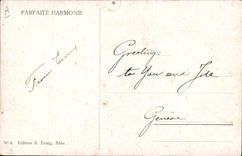 PARFAITE HARMONIE
From
Greetings
to You and Ida
Genève
Nº 6. Edition E. Zenig, Bâle